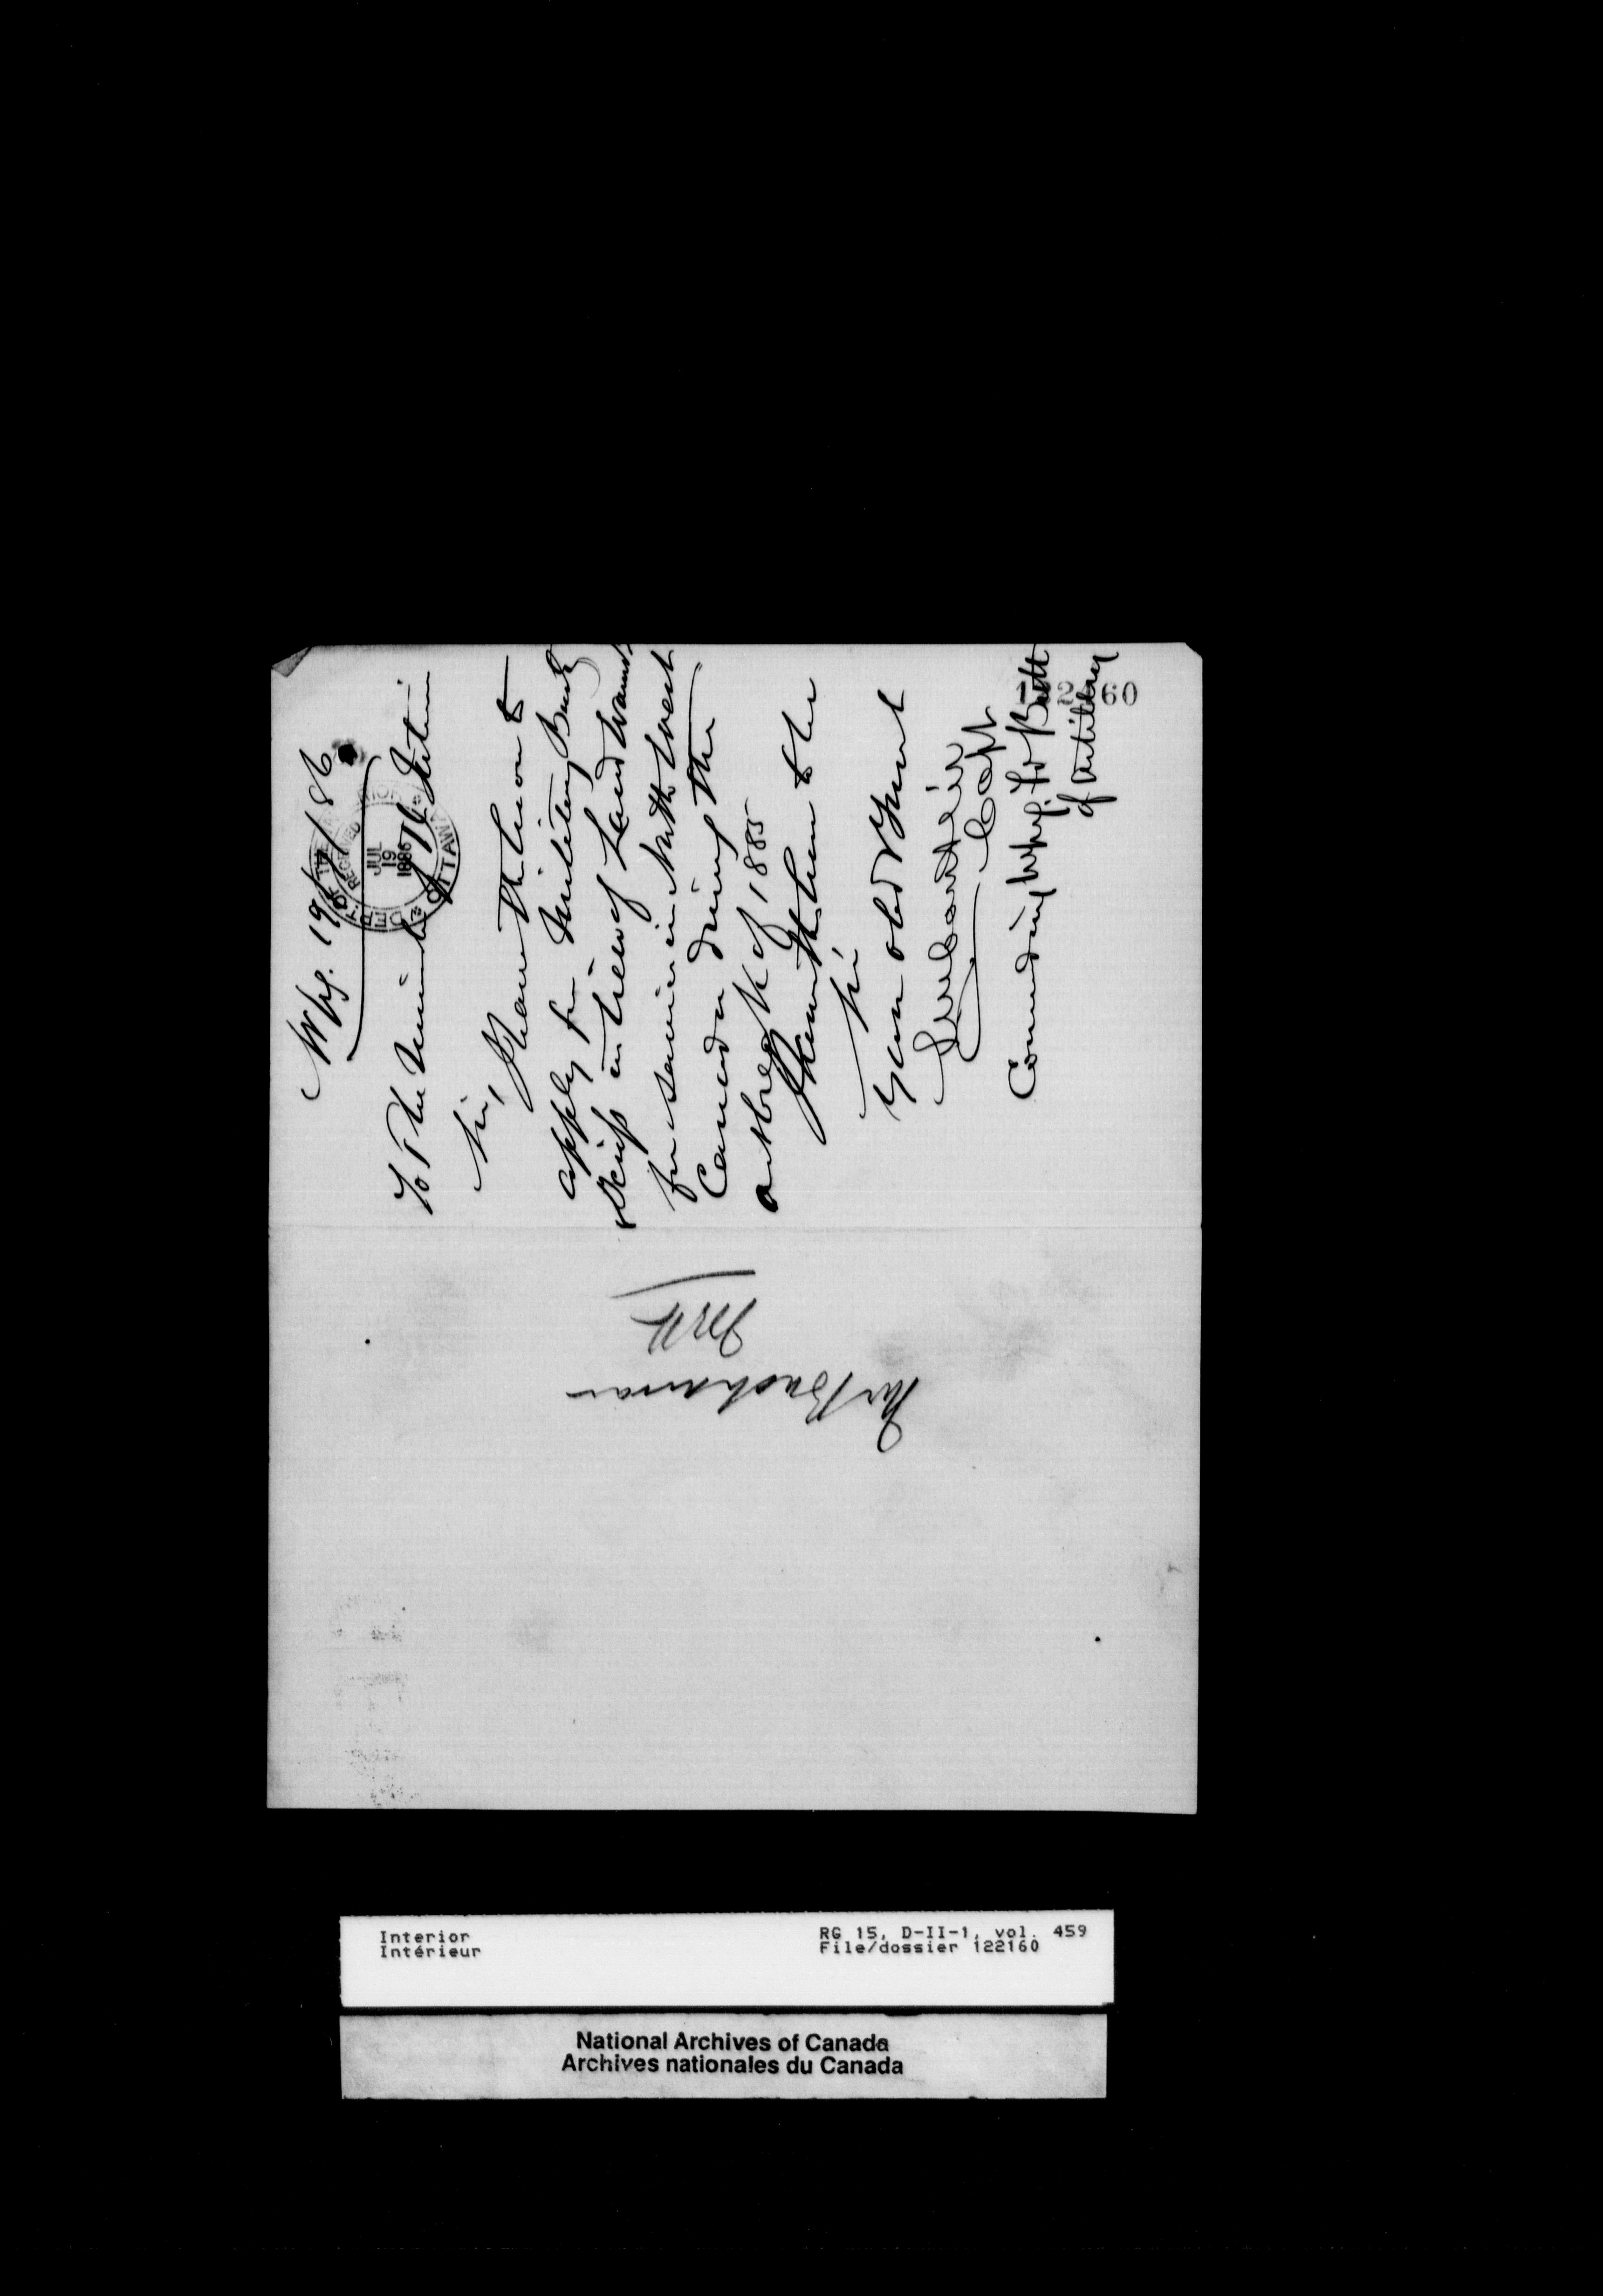 Wpg. 19/7/86
DEPT. OF THE INTERIOR
RECEIVED
JUL
19
1886
OTTAWA
To The Minister of The Interior
Sir,
I have the honor to
apply for Military Bounty
Scrip in lieu of Land Warrant
for services in North West
Canada during the
outbreak of 1885
I have the honor to be
Sir
Your obdt Servt
Capt
Commanding Wpg. Fd Batt
of Artillery
122160
Mr Buchanan
Interior
Intérieur
RG 15, D-II-1, vol. 459
File/dossier 122160
National Archives of Canada
Archives nationales du Canada